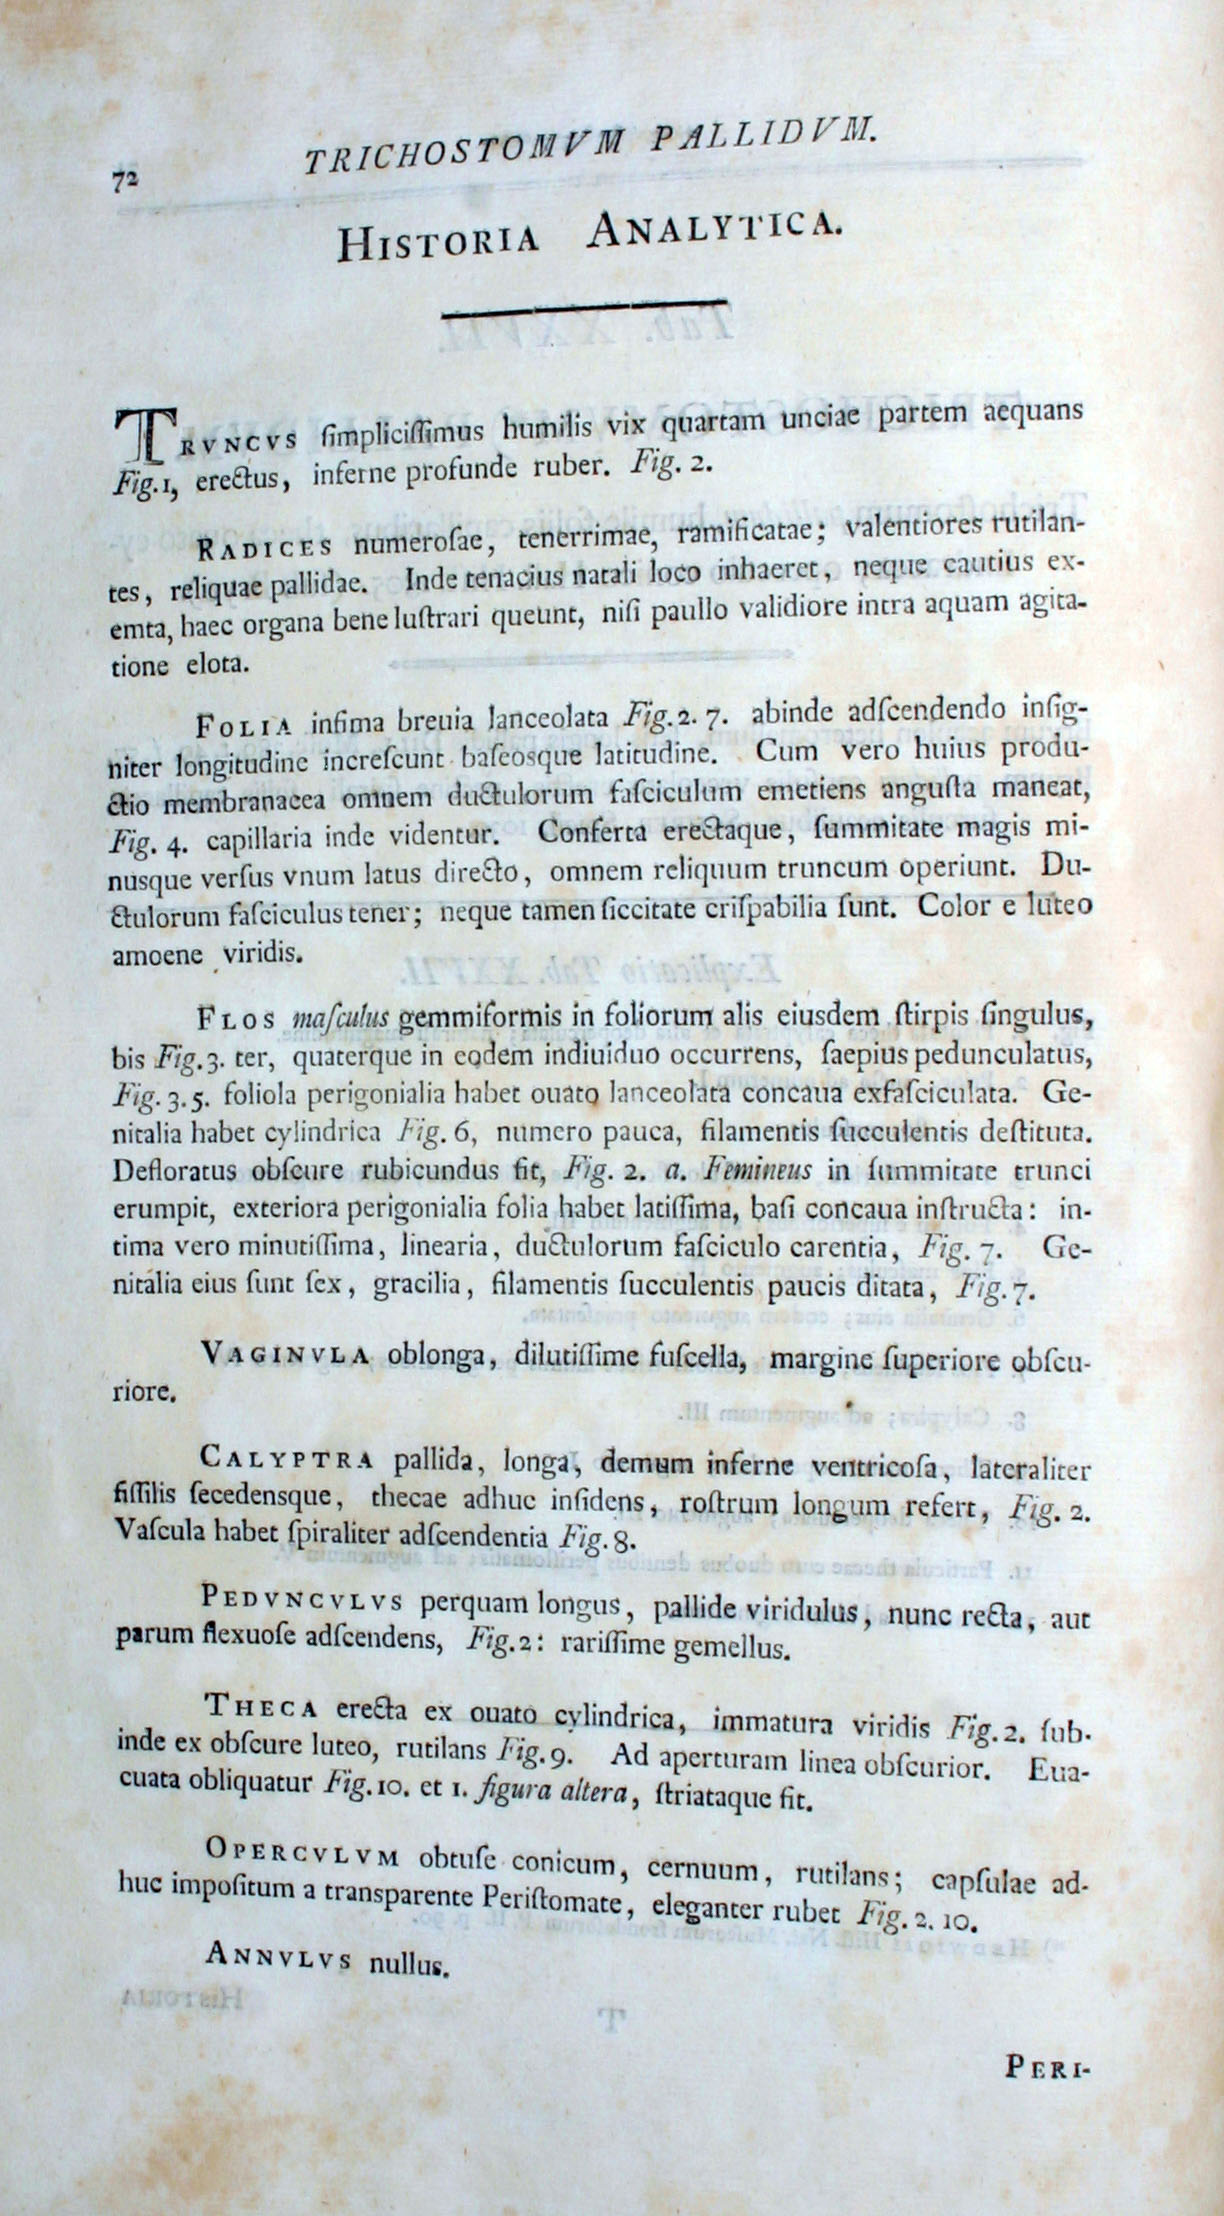 72
TRICHOSTOMVM PALLIDVM.
HISTORIA ANALYTICA.
TRVNCVS ſimpliciſſimus humilis vix quartam unciae partem aequans
Fig. 1, erectus, inferne profunde ruber. Fig. 2.
RADICES numeroſae, tenerrimae, ramificatae; valentiores rutilan-
tes, reliquae pallidae. Inde tenacius natali loco inhaeret, neque cautius ex-
emta, haec organa bene luſtrari queunt, niſi paullo validiore intra aquam agita-
tione elota.
FOLIA infima breuia lanceolata Fig. 2. 7. abinde adſcendendo inſig-
niter longitudine increſcunt baſeosque latitudine. Cum vero huius produ-
ctio membranacea omnem ductulorum faſciculum emetiens anguſta maneat,
Fig. 4. capillaria inde videntur. Conferta erectaque, ſummitate magis mi-
nusque verſus vnum latus directo, omnem reliquum truncum operiunt. Du-
ctulorum faſciculus tener; neque tamen ſiccitate criſpabilia ſunt. Color e luteo
amoene viridis.
FLOS maſculus gemmiformis in foliorum alis eiusdem ſtirpis ſingulus,
bis Fig. 3. ter, quaterque in eodem indiuiduo occurrens, ſaepius pedunculatus,
Fig. 3. 5. foliola perigonialia habet ouato lanceolata concaua exfaſciculata. Ge-
nitalia habet cylindrica Fig. 6, numero pauca, filamentis ſucculentis deſtituta.
Defloratus obſcure rubicundus fit, Fig. 2. a. Femineus in ſummitate trunci
erumpit, exteriora perigonialia folia habet latiſſima, baſi concaua inſtructa: in-
tima vero minutiſſima, linearia, ductulorum faſciculo carentia, Fig. 7. Ge-
nitalia eius ſunt ſex, gracilia, filamentis ſucculentis paucis ditata, Fig. 7.
VAGINVLA oblonga, dilutiſſime fuſcella, margine ſuperiore obſcu-
riore.
CALYPTRA pallida, longa, demum inferne ventricoſa, lateraliter
fiſſilis ſecedensque, thecae adhuc inſidens, roſtrum longum refert, Fig. 2.
Vaſcula habet ſpiraliter adſcendentia Fig. 8.
PEDVNCVLVS perquam longus, pallide viridulus, nunc recta, aut
parum flexuoſe adſcendens, Fig. 2: rariſſime gemellus.
THECA erecta ex ouato cylindrica, immatura viridis Fig. 2. ſub-
inde ex obſcure luteo, rutilans Fig. 9. Ad aperturam linea obſcurior. Eua-
cuata obliquatur Fig. 10. et 1. figura altera, ſtriataque fit.
OPERCVLVM obtuſe conicum, cernuum, rutilans; capſulae ad-
huc impoſitum a transparente Periſtomate, eleganter rubet Fig. 2. 10.
ANNVLVS nullus.
PERI-